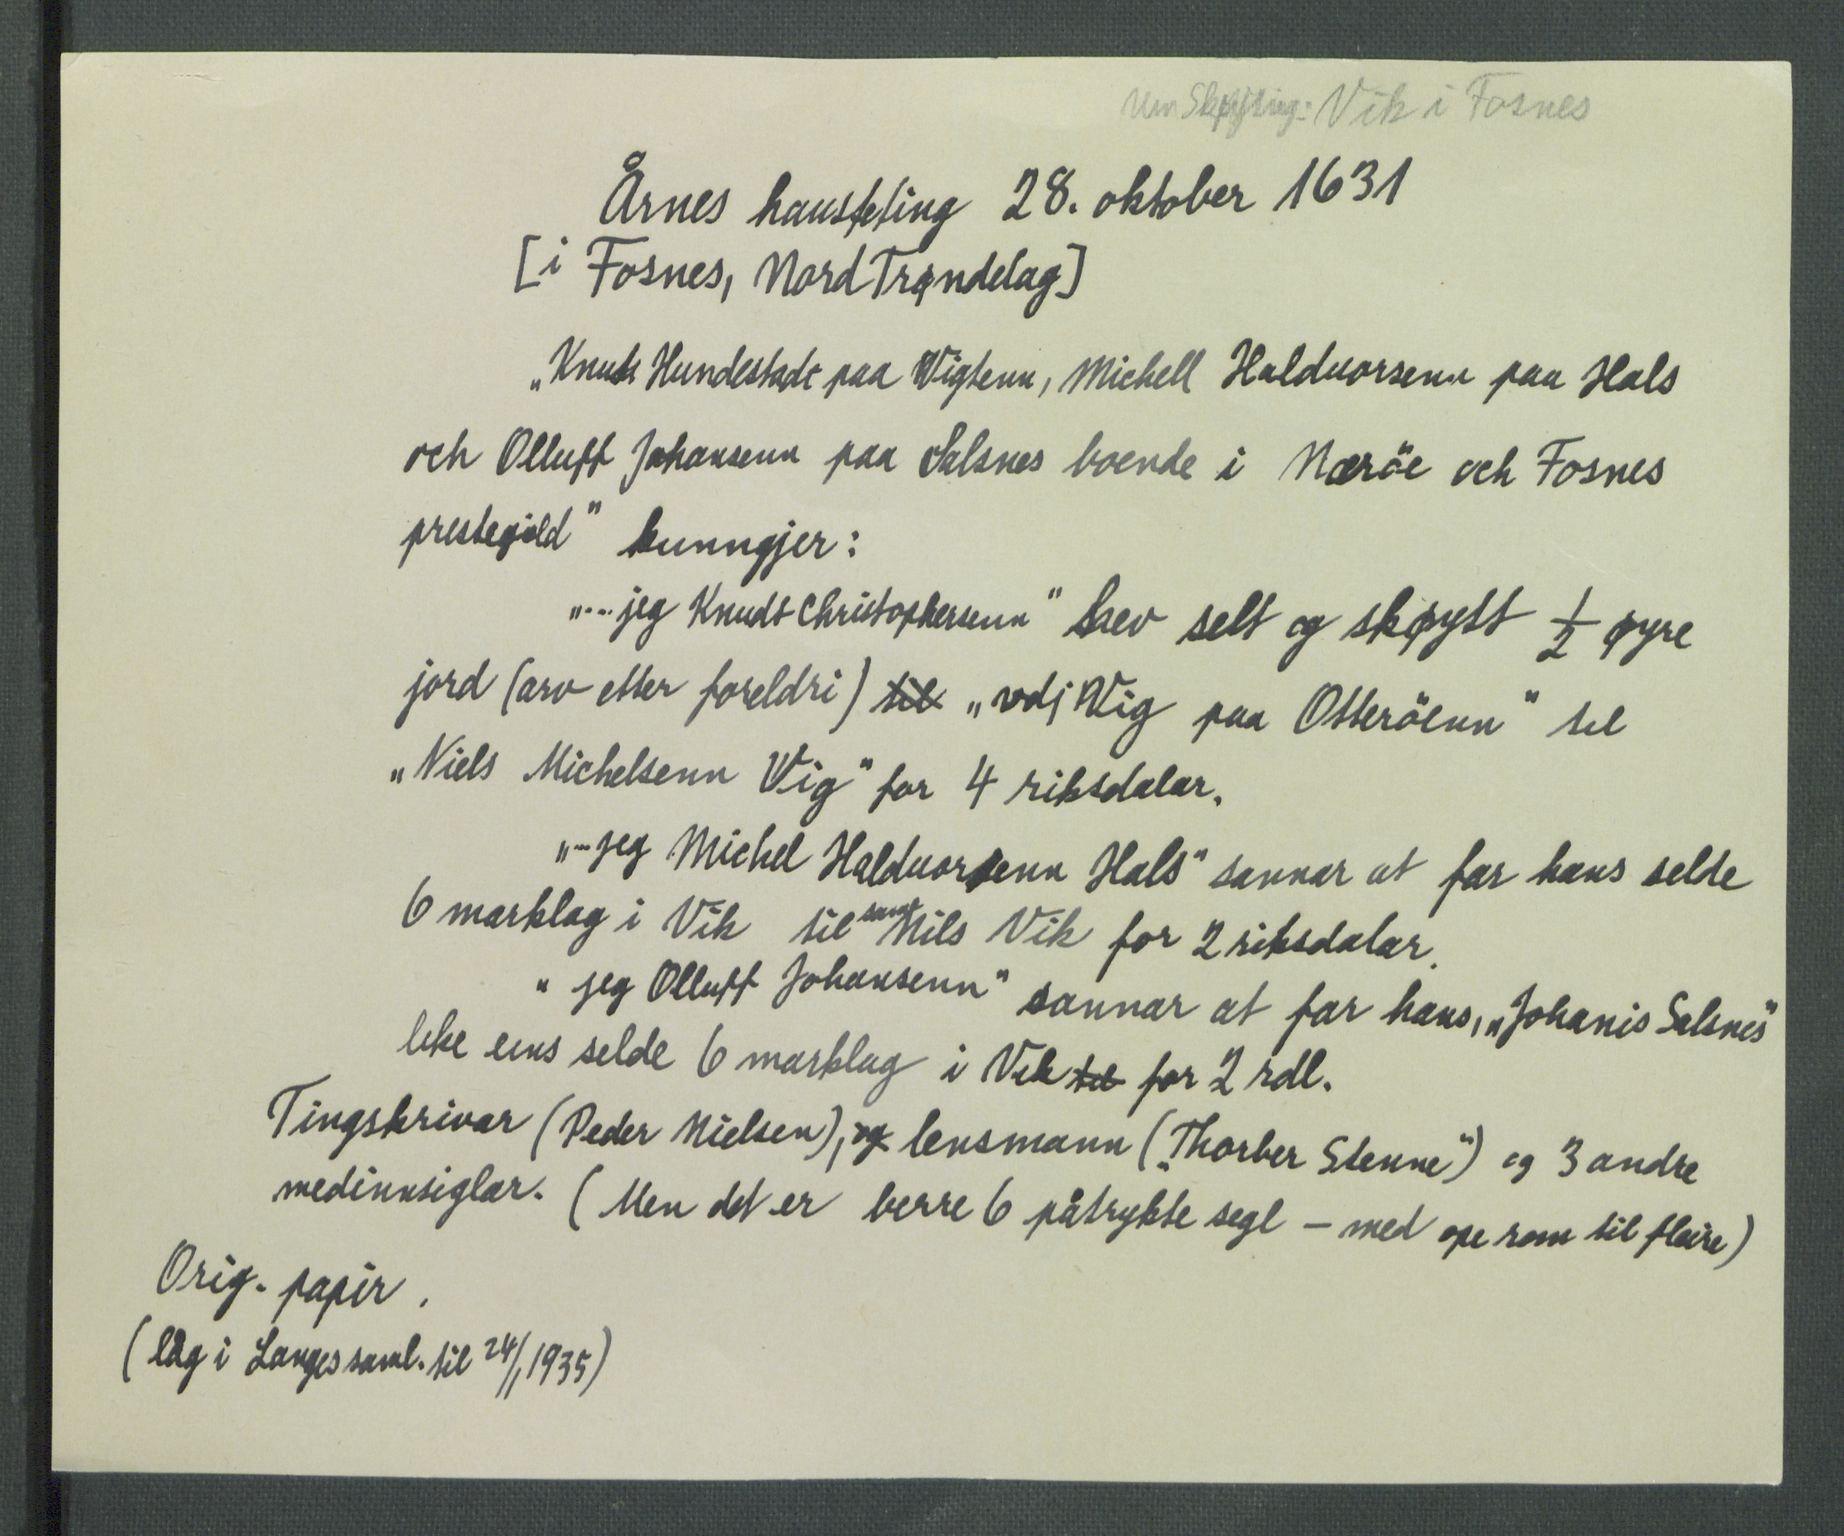 Um Skøyting: Vik i Fosnes
Årnes haustting 28. oktober 1631
[i Fosnes, Nord Trøndelag]
„Knudt Hundestadt paa Wigtenn, Michell Halduorsenn paa Hals
och Olluff Johansenn paa Salsnes boende i Næröe och Fosnes
prestegield" kunngjer:
„... jeg Knudt Christophersenn" hev selt og skøytt ½ øyre
jord (arv etter foreldri) til „vdj Wig paa Otteröenn" til
„Niels Michelsenn Wig" for 4 riksdalar.
„... jeg Michel Halduorsenn Hals" sannar at far hans selde
6 marklag i Vik til same Nils Vik for 2 riksdalar.
„ jeg Olluff Johansenn" sannar at far hans, „Johanis Salsnes"
like eins selde 6 marklag i Vik til for 2 rdl.
Tingskrivar (Peder Nielsen), og lensmann („Thorber Stenne") og 3 andre
medinnsiglar. (Men det er berre 6 påtrykte segl – med ope rom til fleire)
Orig. papir.
(låg i Langes saml. til 24/1 1935)